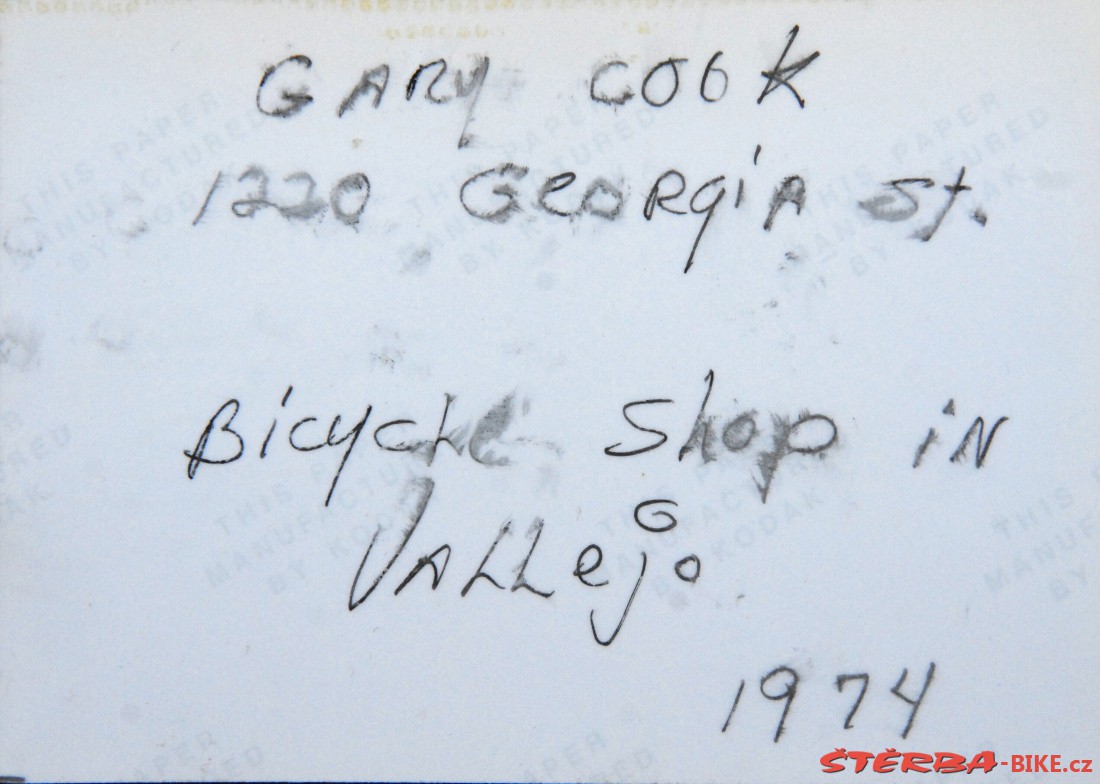 GARY COOK
1220 GeORgiA St.
Bicycle Shop iN
VALLejo
1974
THIS PAPER
MANUFACTURED
BY KODAK
THIS PAPER
MANUFACTURED
BY KODAK
THIS PAPER
MANUFACTURED
BY KODAK
THIS PAPER
MANUFACTURED
BY KODAK
THIS PAPER
MANUFACTURED
BY KODAK
ŠTĚRBA-BIKE.cz